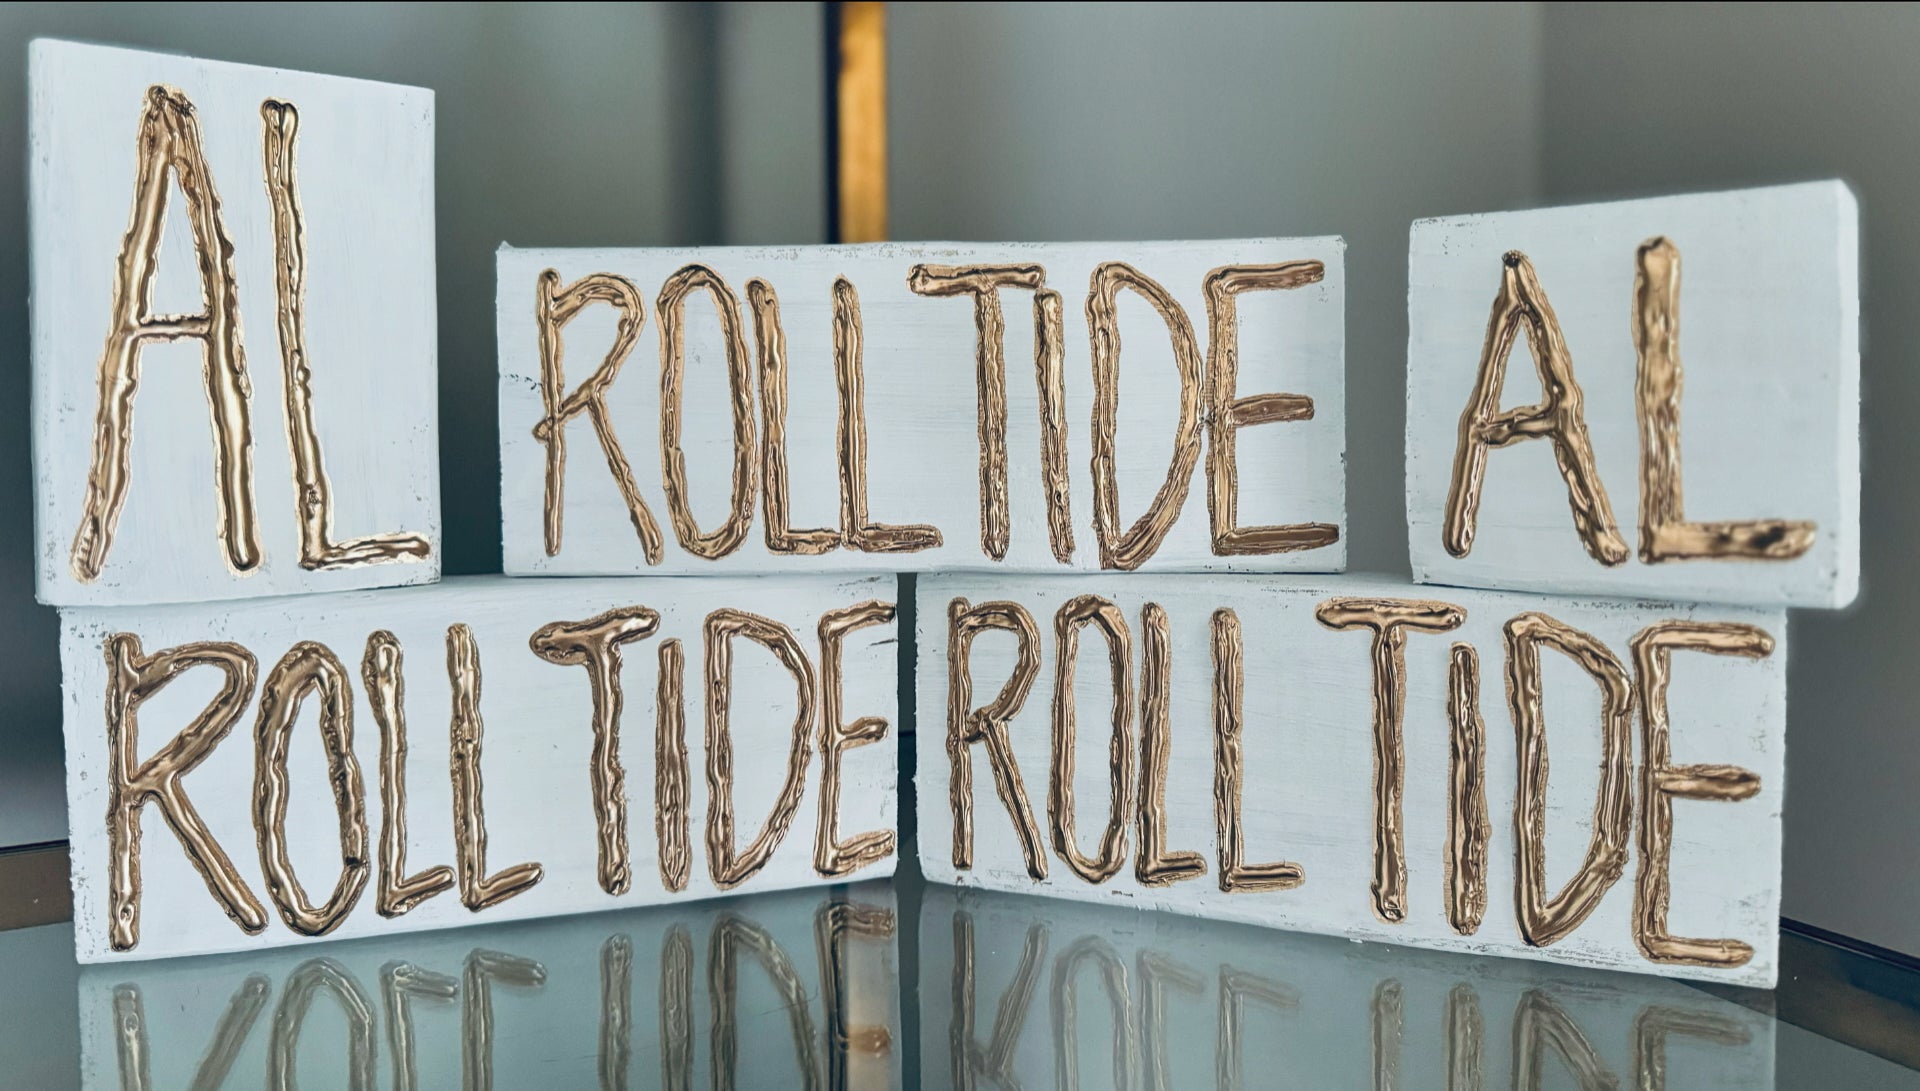 AL
ROLL TIDE
AL
ROLL TIDE
ROLL TIDE